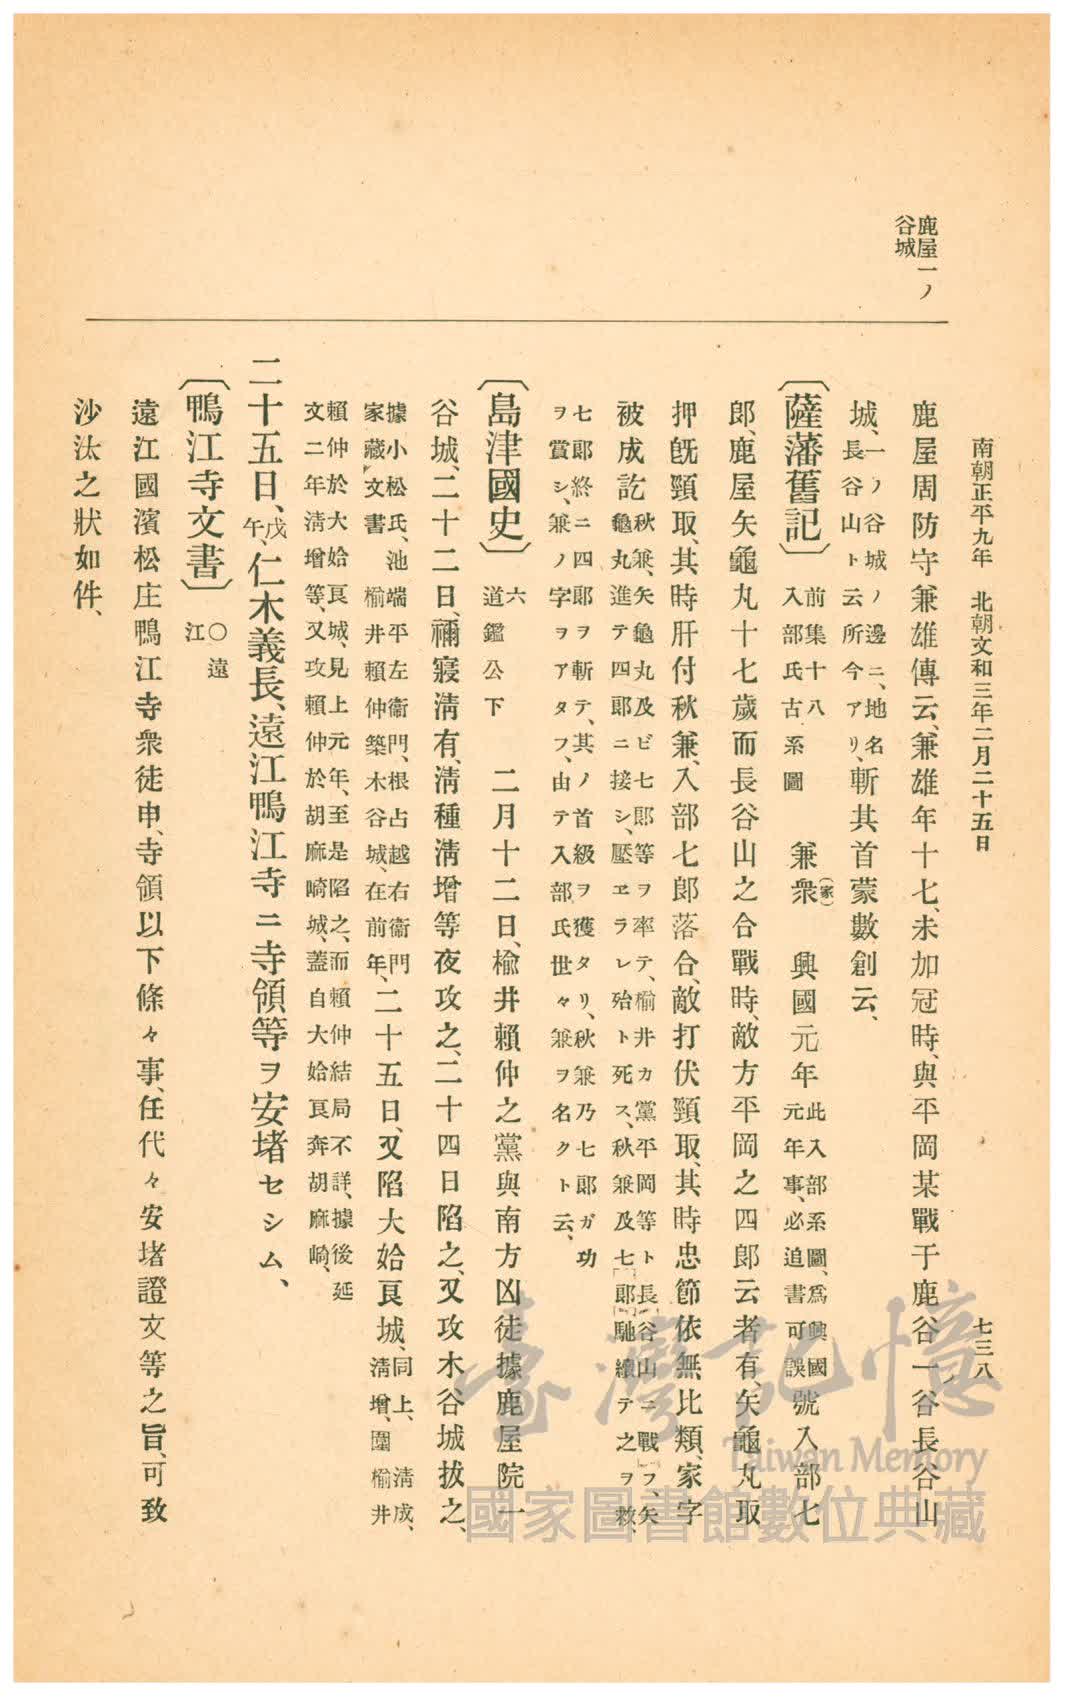 南朝正平九年 北朝文和三年二月二十五日 七三八
鹿屋一ノ
谷城
鹿屋周防守兼雄傳云、兼雄年十七、未加冠時、與平岡某戰于鹿谷一谷長谷山
城、一ノ谷城ノ邊ニ、地名長谷山ト云所今アリ、斬其首蒙數創云、
〔薩藩舊記〕前集十八入部氏古系圖 兼衆(家) 興國元年此入部系圖、爲興國元年事、必追書可誤號入部七
郎、鹿屋矢龜丸十七歲而長谷山之合戰時、敵方平岡之四郎云者有、矢龜丸取
押旣頸取、其時肝付秋兼、入部七郎落合、敵打伏頸取、其時忠節依無比類、家字
被成訖秋兼、矢龜丸及ビ七郎等ヲ率テ、楡井カ黨平岡等ト長谷山ニ戰フ、矢龜丸進テ四郎ニ接シ、壓ヱラレ殆ト死ス、秋兼及七郎馳續テ之ヲ救、
七郎終ニ四郎ヲ斬テ、其ノ首級ヲ獲タリ、秋兼乃七郎ガ功ヲ賞シ、兼ノ字ヲアタフ、由テ入部氏世々兼ヲ名クト云、
〔島津國史〕六道鑑公下 二月十二日、楡井賴仲之黨與南方凶徒據鹿屋院一
谷城、二十二日、禰寢淸有、淸種淸增等夜攻之、二十四日陷之、又攻木谷城拔之、
據小松氏、池端平左衞門、根占越右衞門家藏文書 楡井賴仲築木谷城、在前年、二十五日、又陷大姶良城、同上、淸成、淸增、圍楡井
賴仲於大姶良城、見上元年、至是陷之、而賴仲結局不詳、據後延文二年淸增等、又攻賴仲於胡麻崎城、蓋自大姶良奔胡麻崎、
二十五日、戊午、仁木義長、遠江鴨江寺ニ寺領等ヲ安堵セシム、
〔鴨江寺文書〕○遠江
遠江國濱松庄鴨江寺衆徒申、寺領以下條々事、任代々安堵證文等之旨、可致
沙汰之狀如件、
臺灣記憶
Taiwan Memory
國家圖書館數位典藏